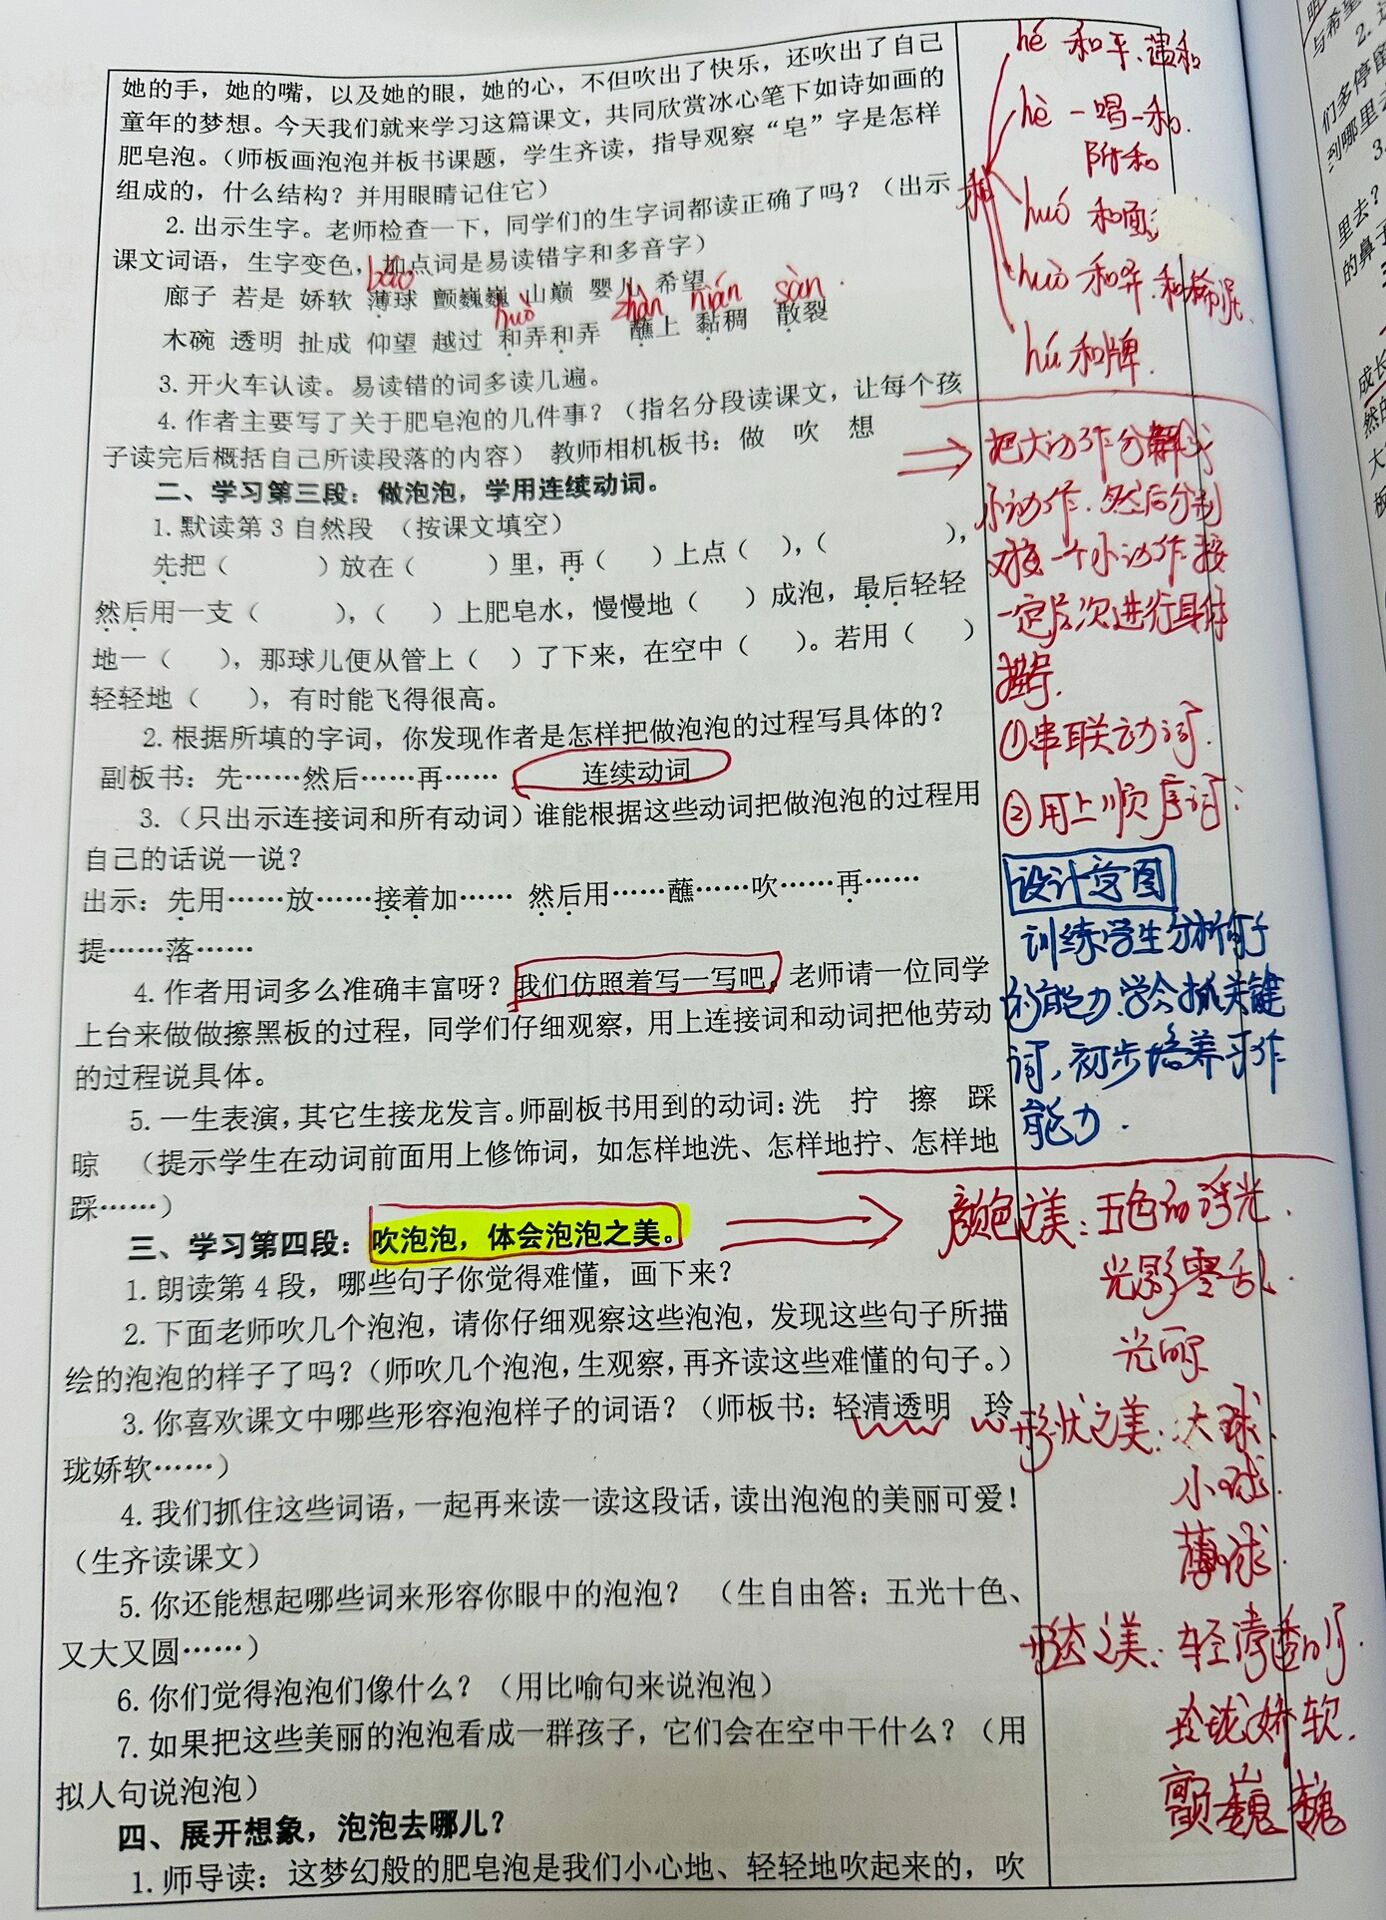 她的手，她的嘴，以及她的眼，她的心，不但吹出了快乐，还吹出了自己
童年的梦想。今天我们就来学习这篇课文，共同欣赏冰心笔下如诗如画的
肥皂泡。（师板画泡泡并板书课题，学生齐读，指导观察“皂”字是怎样
组成的，什么结构？并用眼睛记住它）
2. 出示生字。老师检查一下，同学们的生字词都读正确了吗？（出示
课文词语，生字变色，加点词是易读错字和多音字）
báo
廊子 若是 娇软 薄球 颤巍巍 山巅 婴儿 希望
huò zhàn nián sàn
木碗 透明 扯成 仰望 越过 和弄和弄 蘸上 黏稠 散裂
3. 开火车认读。易读错的词多读几遍。
4. 作者主要写了关于肥皂泡的几件事？（指名分段读课文，让每个孩
子读完后概括自己所读段落的内容） 教师相机板书：做 吹 想
二、学习第三段：做泡泡，学用连续动词。
1. 默读第 3 自然段 （按课文填空）
先把（ ）放在（ ）里，再（ ）上点（ ），（ ），
然后用一支（ ），（ ）上肥皂水，慢慢地（ ）成泡，最后轻轻
地一（ ），那球儿便从管上（ ）了下来，在空中（ ）。若用（ ）
轻轻地（ ），有时能飞得很高。
2. 根据所填的字词，你发现作者是怎样把做泡泡的过程写具体的？
副板书：先……然后……再…… 连续动词
3.（只出示连接词和所有动词）谁能根据这些动词把做泡泡的过程用
自己的话说一说？
出示：先用……放……接着加…… 然后用……蘸……吹……再……
提……落……
4. 作者用词多么准确丰富呀？我们仿照着写一写吧。老师请一位同学
上台来做做擦黑板的过程，同学们仔细观察，用上连接词和动词把他劳动
的过程说具体。
5. 一生表演，其它生接龙发言。师副板书用到的动词：洗 拧 擦 踩
晾 （提示学生在动词前面用上修饰词，如怎样地洗、怎样地拧、怎样地
踩……）
三、学习第四段：吹泡泡，体会泡泡之美。
1. 朗读第 4 段，哪些句子你觉得难懂，画下来？
2. 下面老师吹几个泡泡，请你仔细观察这些泡泡，发现这些句子所描
绘的泡泡的样子了吗？（师吹几个泡泡，生观察，再齐读这些难懂的句子。）
3. 你喜欢课文中哪些形容泡泡样子的词语？（师板书：轻清透明 玲
珑娇软……）
4. 我们抓住这些词语，一起再来读一读这段话，读出泡泡的美丽可爱！
（生齐读课文）
5. 你还能想起哪些词来形容你眼中的泡泡？ （生自由答：五光十色、
又大又圆……）
6. 你们觉得泡泡们像什么？（用比喻句来说泡泡）
7. 如果把这些美丽的泡泡看成一群孩子，它们会在空中干什么？（用
拟人句说泡泡）
四、展开想象，泡泡去哪儿？
1. 师导读：这梦幻般的肥皂泡是我们小心地、轻轻地吹起来的，吹
和
hé 和平、温和
hè 一唱一和.
附和
huó 和面
huò 和弄.和稀泥.
hú 和牌.
把大动作分解成
小动作.然后分别
对每一个小动作按
一定层次进行具体
描写.
①串联动词.
②用上顺序词:
设计意图
训练学生分析句子
的能力.学会抓关键
词，初步培养习作
能力.
颜色之美：五色的浮光.
光影零乱.
光丽
形状之美：大球.
小球.
薄球.
形态之美：轻清透明.
玲珑娇软.
颤巍巍
与希望
2.
们多停留
到哪里去
3.
里去？
的鼻子
成长
然的
大
板